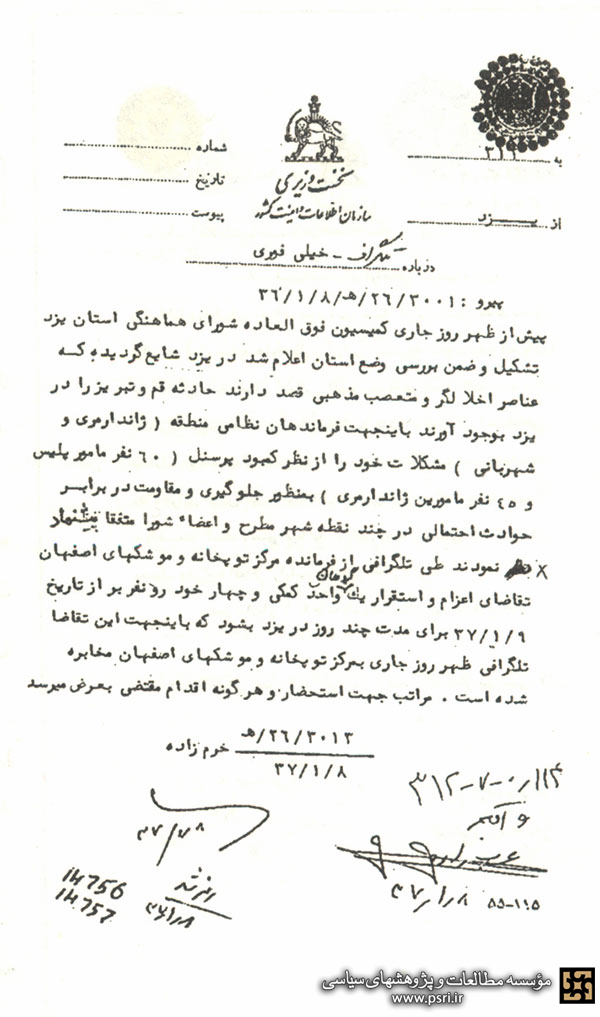 به ۳۱۲
شماره
نخست وزیری
تاریخ
سازمان اطلاعات و امنیت کشور
پیوست
از یزد
درباره تلگراف - خیلی فوری
پیرو : ۲۶/۳۰۰۱/هـ/۳۶/۱/۸
پیش از ظهر روز جاری کمیسیون فوق العاده شورای هماهنگی استان یزد
تشکیل و ضمن بررسی وضع استان اعلام شد در یزد شایع گردیده که
عناصر اخلا لگر و متعصب مذهبی قصد دارند حادثه قم و تبریز را در
یزد بوجود آورند باینجهت فرماندهان نظامی منطقه ( ژاندارمری و
شهربانی ) مشکلا ت خود را از نظر کمبود پرسنل ( ۶۰ نفر مامور پلیس
و ۴۵ نفر مامورین ژاندارمری ) بمنظور جلو گیری و مقاومت در برابر
حوادث احتمالی در چند نقطه شهر مطرح و اعضاء شورا متفقا پیشنهاد
نمودند طی تلگرافی از فرمانده مرکز توپخانه و موشکهای اصفهان
تقاضای اعزام و استقرار یک گروهان واحد کمکی و چهار خود رو نفر بر از تاریخ
۳۷/۱/۹ برای مدت چند روز در یزد بشود که باینجهت این تقاضا
تلگرافی ظهر روز جاری بمرکز توپخانه و موشکهای اصفهان مخابره
شده است . مراتب جهت استحضار و هر گونه اقدام مقتضی بعرض میرسد
۲۶/۳۰۱۳/هـ
خرم زاده
۳۷/۱/۸
۵۵-۱۱۵
14756
14757
مؤسسه مطالعات و پژوهشهای سیاسی
www.psri.ir